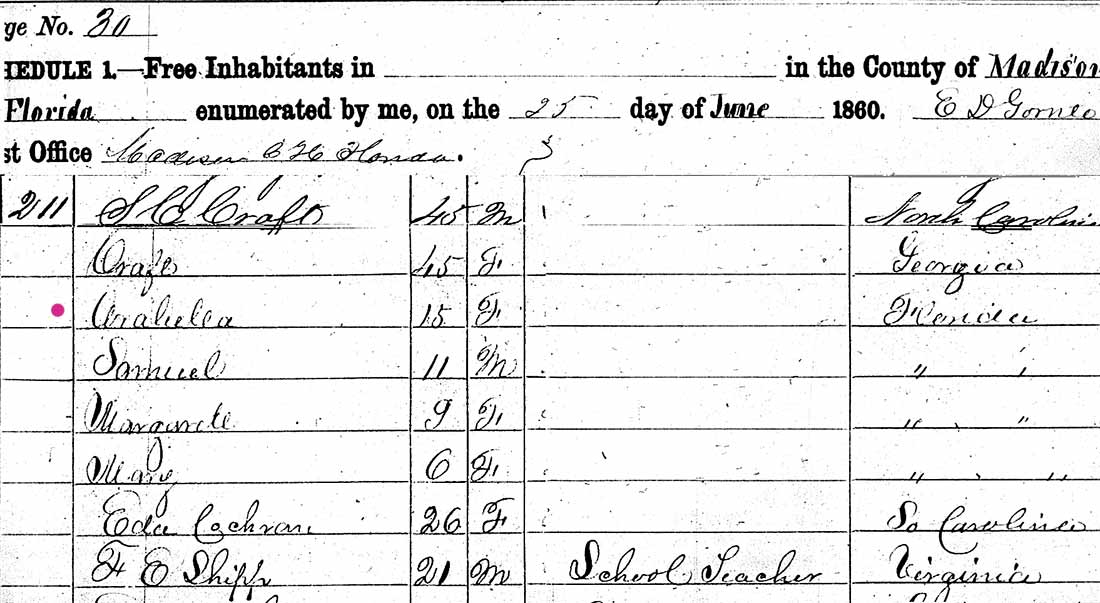 ge No. 30
HEDULE 1.—Free Inhabitants in in the County of Madison
Florida enumerated by me, on the 25 day of June 1860. E D
st Office Madison C H Florida.
211 S C Craft 45 M North Carolin
45 F Georgia
Arabella 15 F Florida
Samuel 11 M " "
Margarete 9 F " "
Mary 6 F " "
Eda Cochran 26 F So Carolina
F E Shipp 21 M School Teacher Virginia